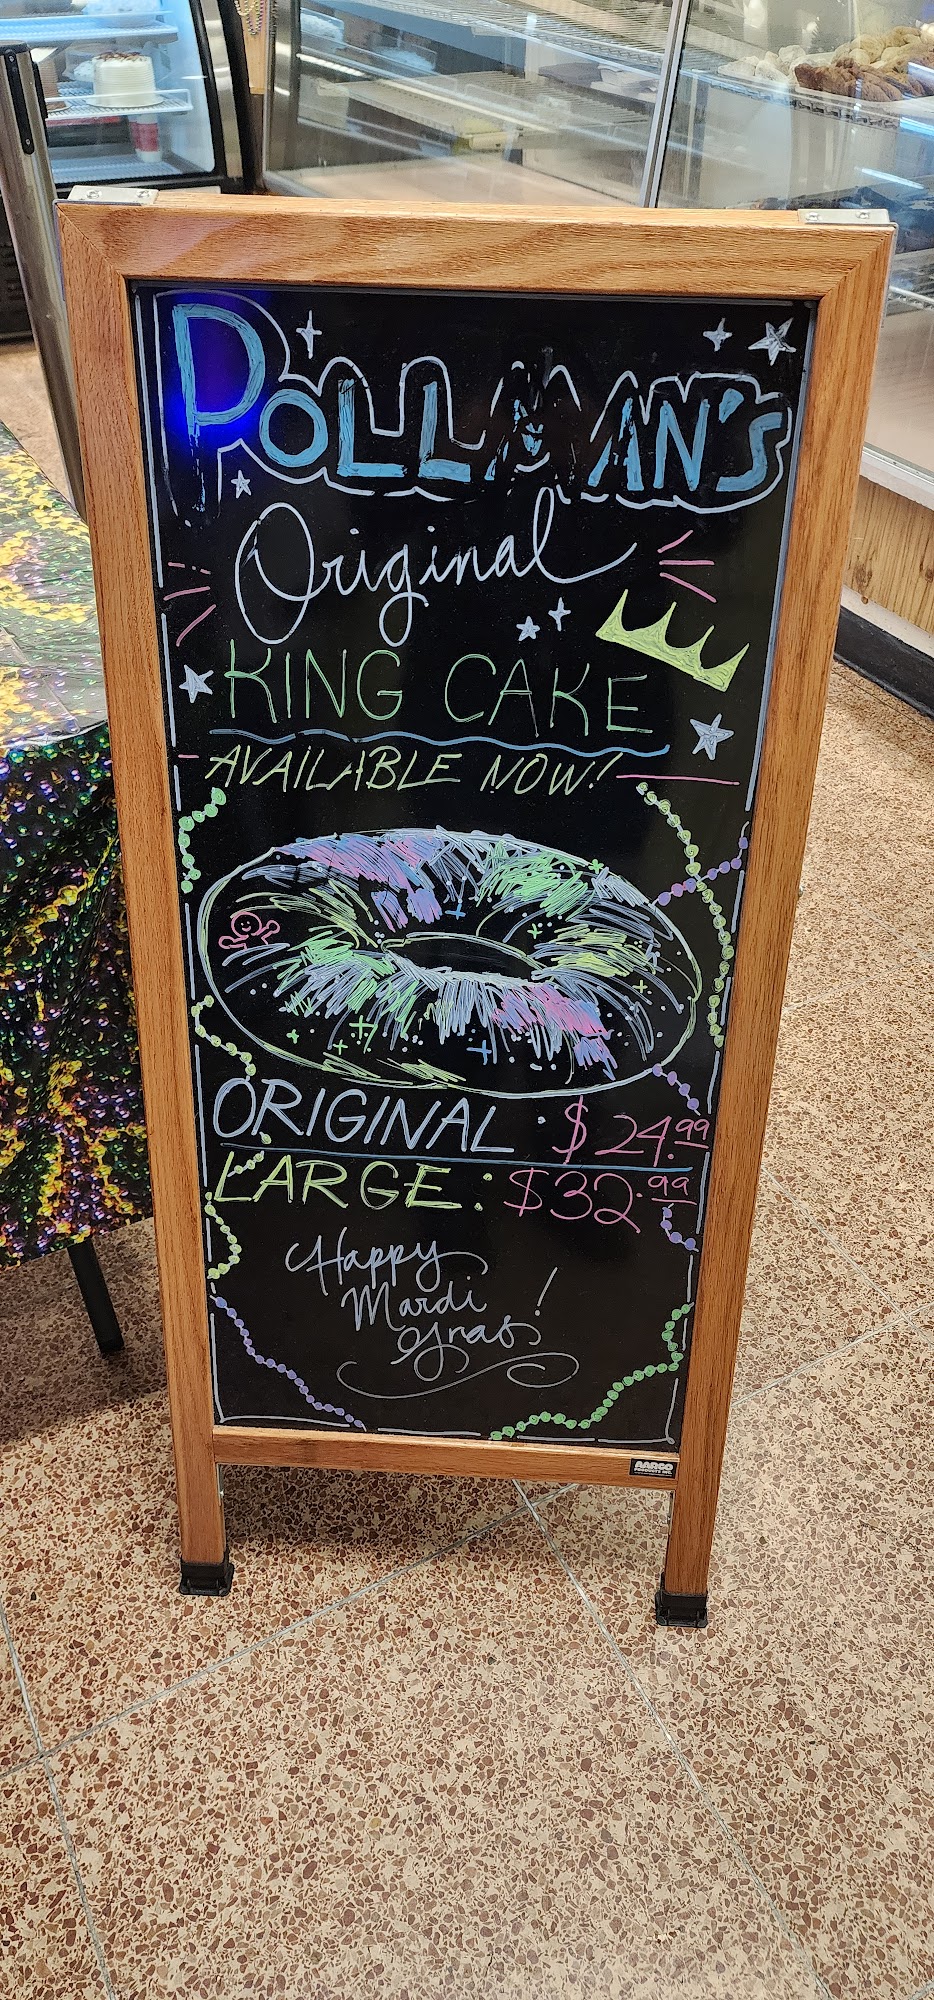 POLLMAN'S
Original
KING CAKE
AVAILABLE NOW!
ORIGINAL: $24.99
LARGE: $32.99
Happy
Mardi
Gras!
AARCO
PRODUCTS INC.